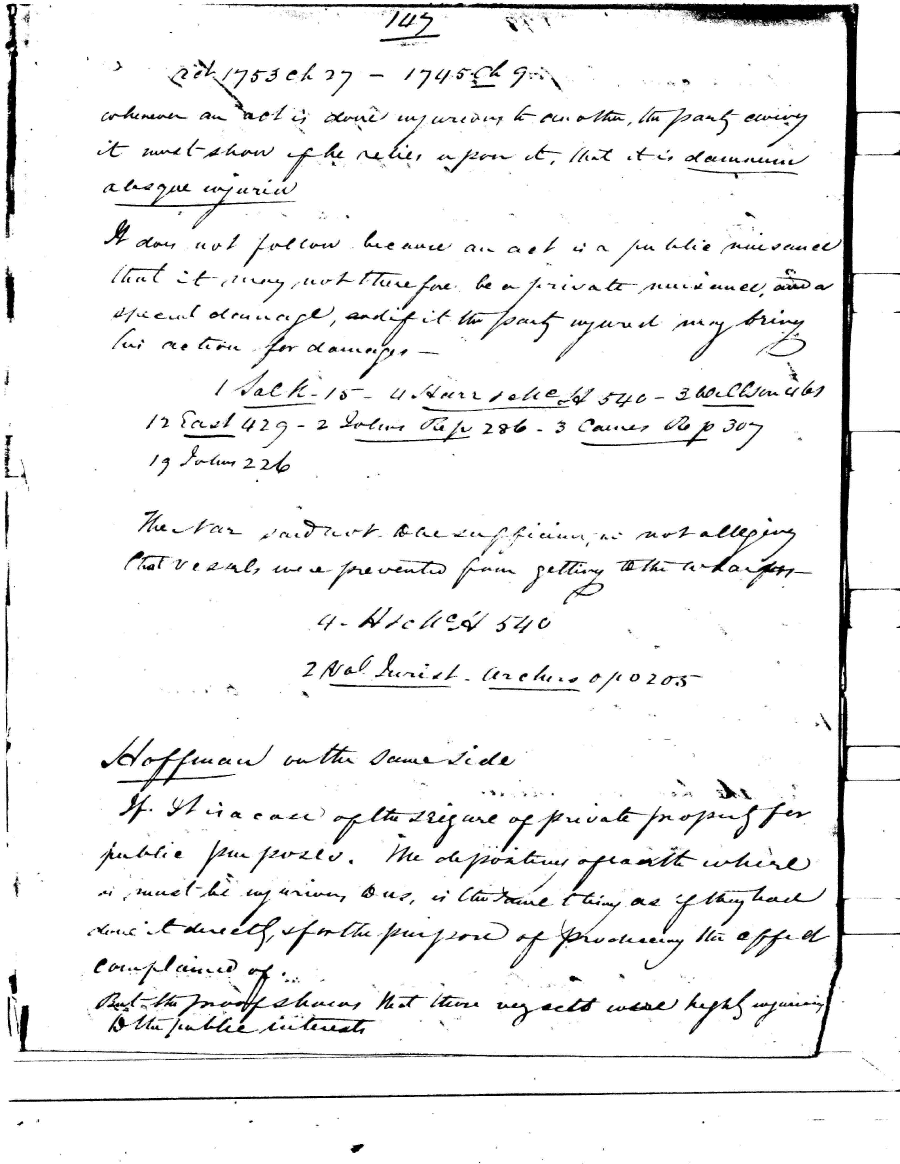 147
act 1753 ch 27 – 1745 ch 9
whenever an act is done injurious to another, the party
it must show if he relies upon it, that it is damnum
absque injuria
It does not follow because an act is a public nuisance
that it may not therefore be a private nuisance, and a
special damage, and if it the party injured may bring
his action for damages –
1 Salk - 15 - 4 Harr & McH 540 - 3 461
12 East 429 - 2 Johns Rep 286 - 3 Caines Rep 307
19 Johns 226
The Nar said not to be sufficient, as not alleging
that vessels were prevented from getting to the wharfs –
4 - H & McH 540
2 Vol Jurist - Archers op 205
Hoffman on the same side
If It is a case of the seizure of private property for
public purposes. The depositing of earth where
it must be injurious to us, is the same thing as if they had
done it directly, & for the purpose of producing the effect
complained of.
But the proof shows that those very acts were highly injurious
to the public interests